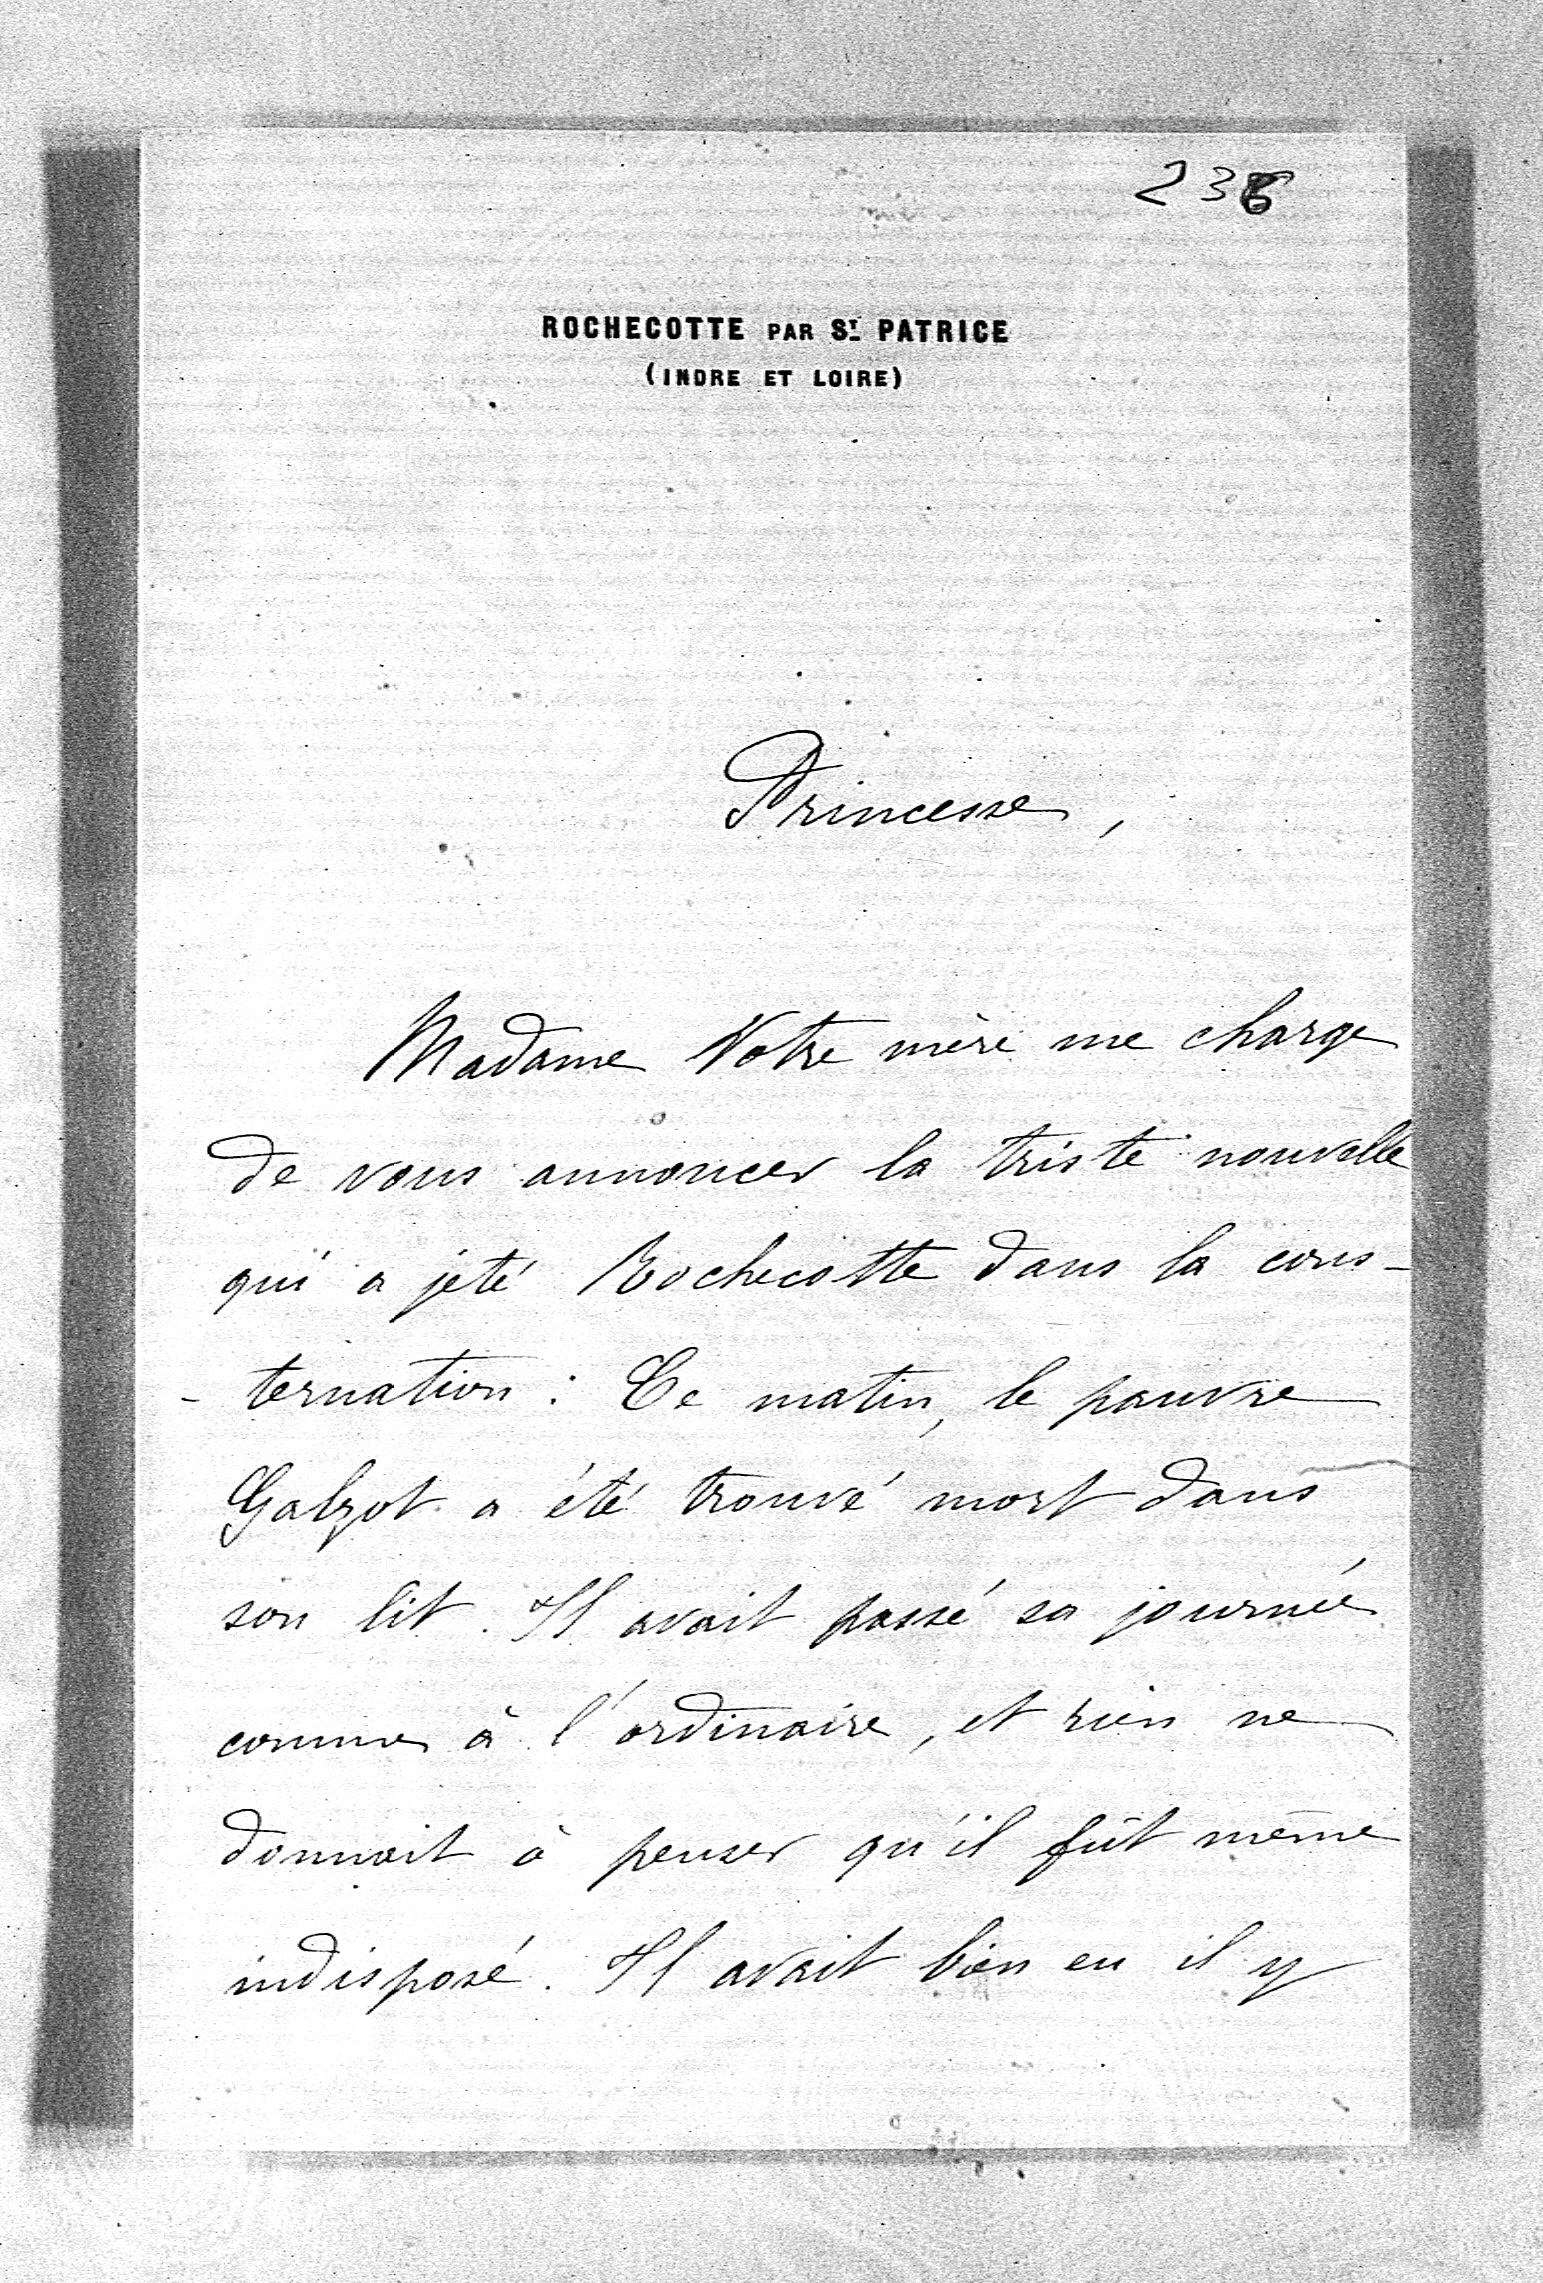 236
ROCHECOTTE PAR ST PATRICE
(INDRE ET LOIRE)
Princesse,
Madame Votre mère me charge
de vous annoncer la triste nouvelle
qui a jeté Rochecotte dans la cons-
- ternation : Ce matin, le pauvre
Galzot a été trouvé mort dans
son lit. Il avait passé sa journée
comme à l'ordinaire, et rien ne
donnait à penser qu'il fût même
indisposé. Il avait bien eu il y